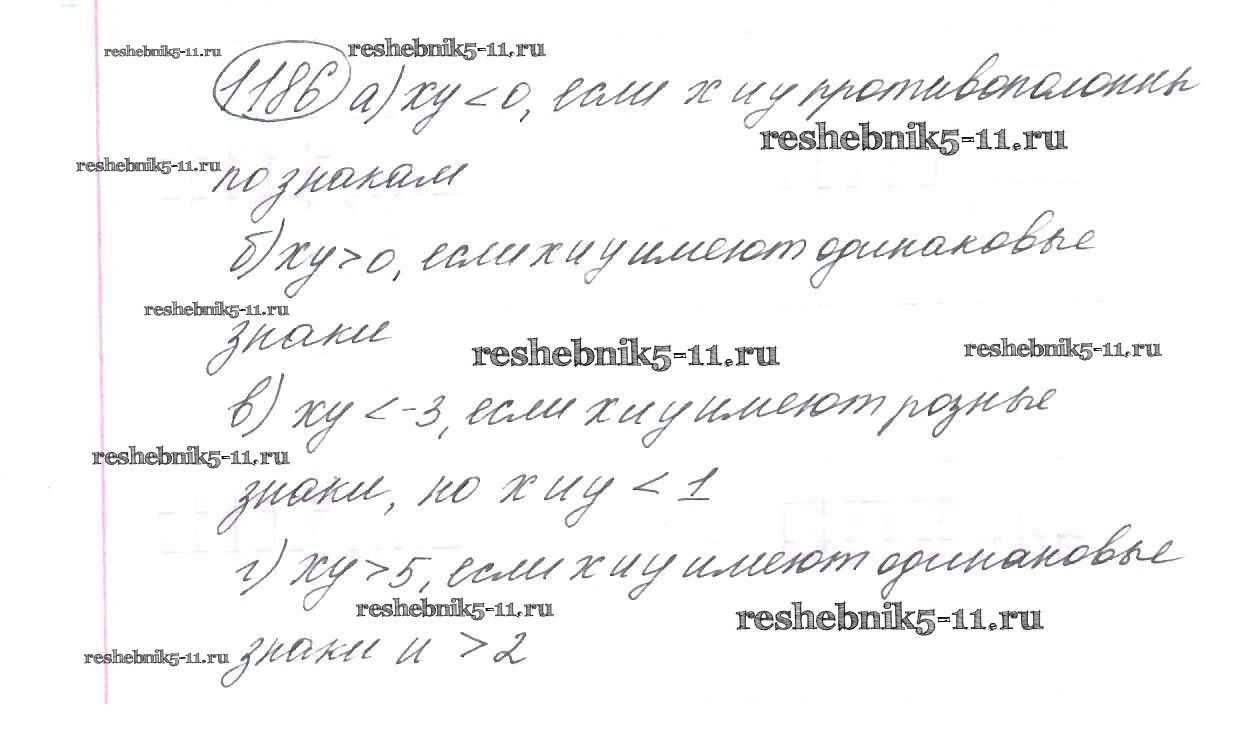 reshebnik5-11.ru reshebnik5-11.ru
1186 а) xy < 0, если x и y противоположны
reshebnik5-11.ru
reshebnik5-11.ru
по знакам
б) xy > 0, если x и y имеют одинаковые
reshebnik5-11.ru
знаки
reshebnik5-11.ru reshebnik5-11.ru
в) xy < -3, если x и y имеют розные
reshebnik5-11.ru
знаки, но x и y < 1
г) xy > 5, если x и y имеют одинаковые
reshebnik5-11.ru reshebnik5-11.ru
reshebnik5-11.ru
знаки и > 2